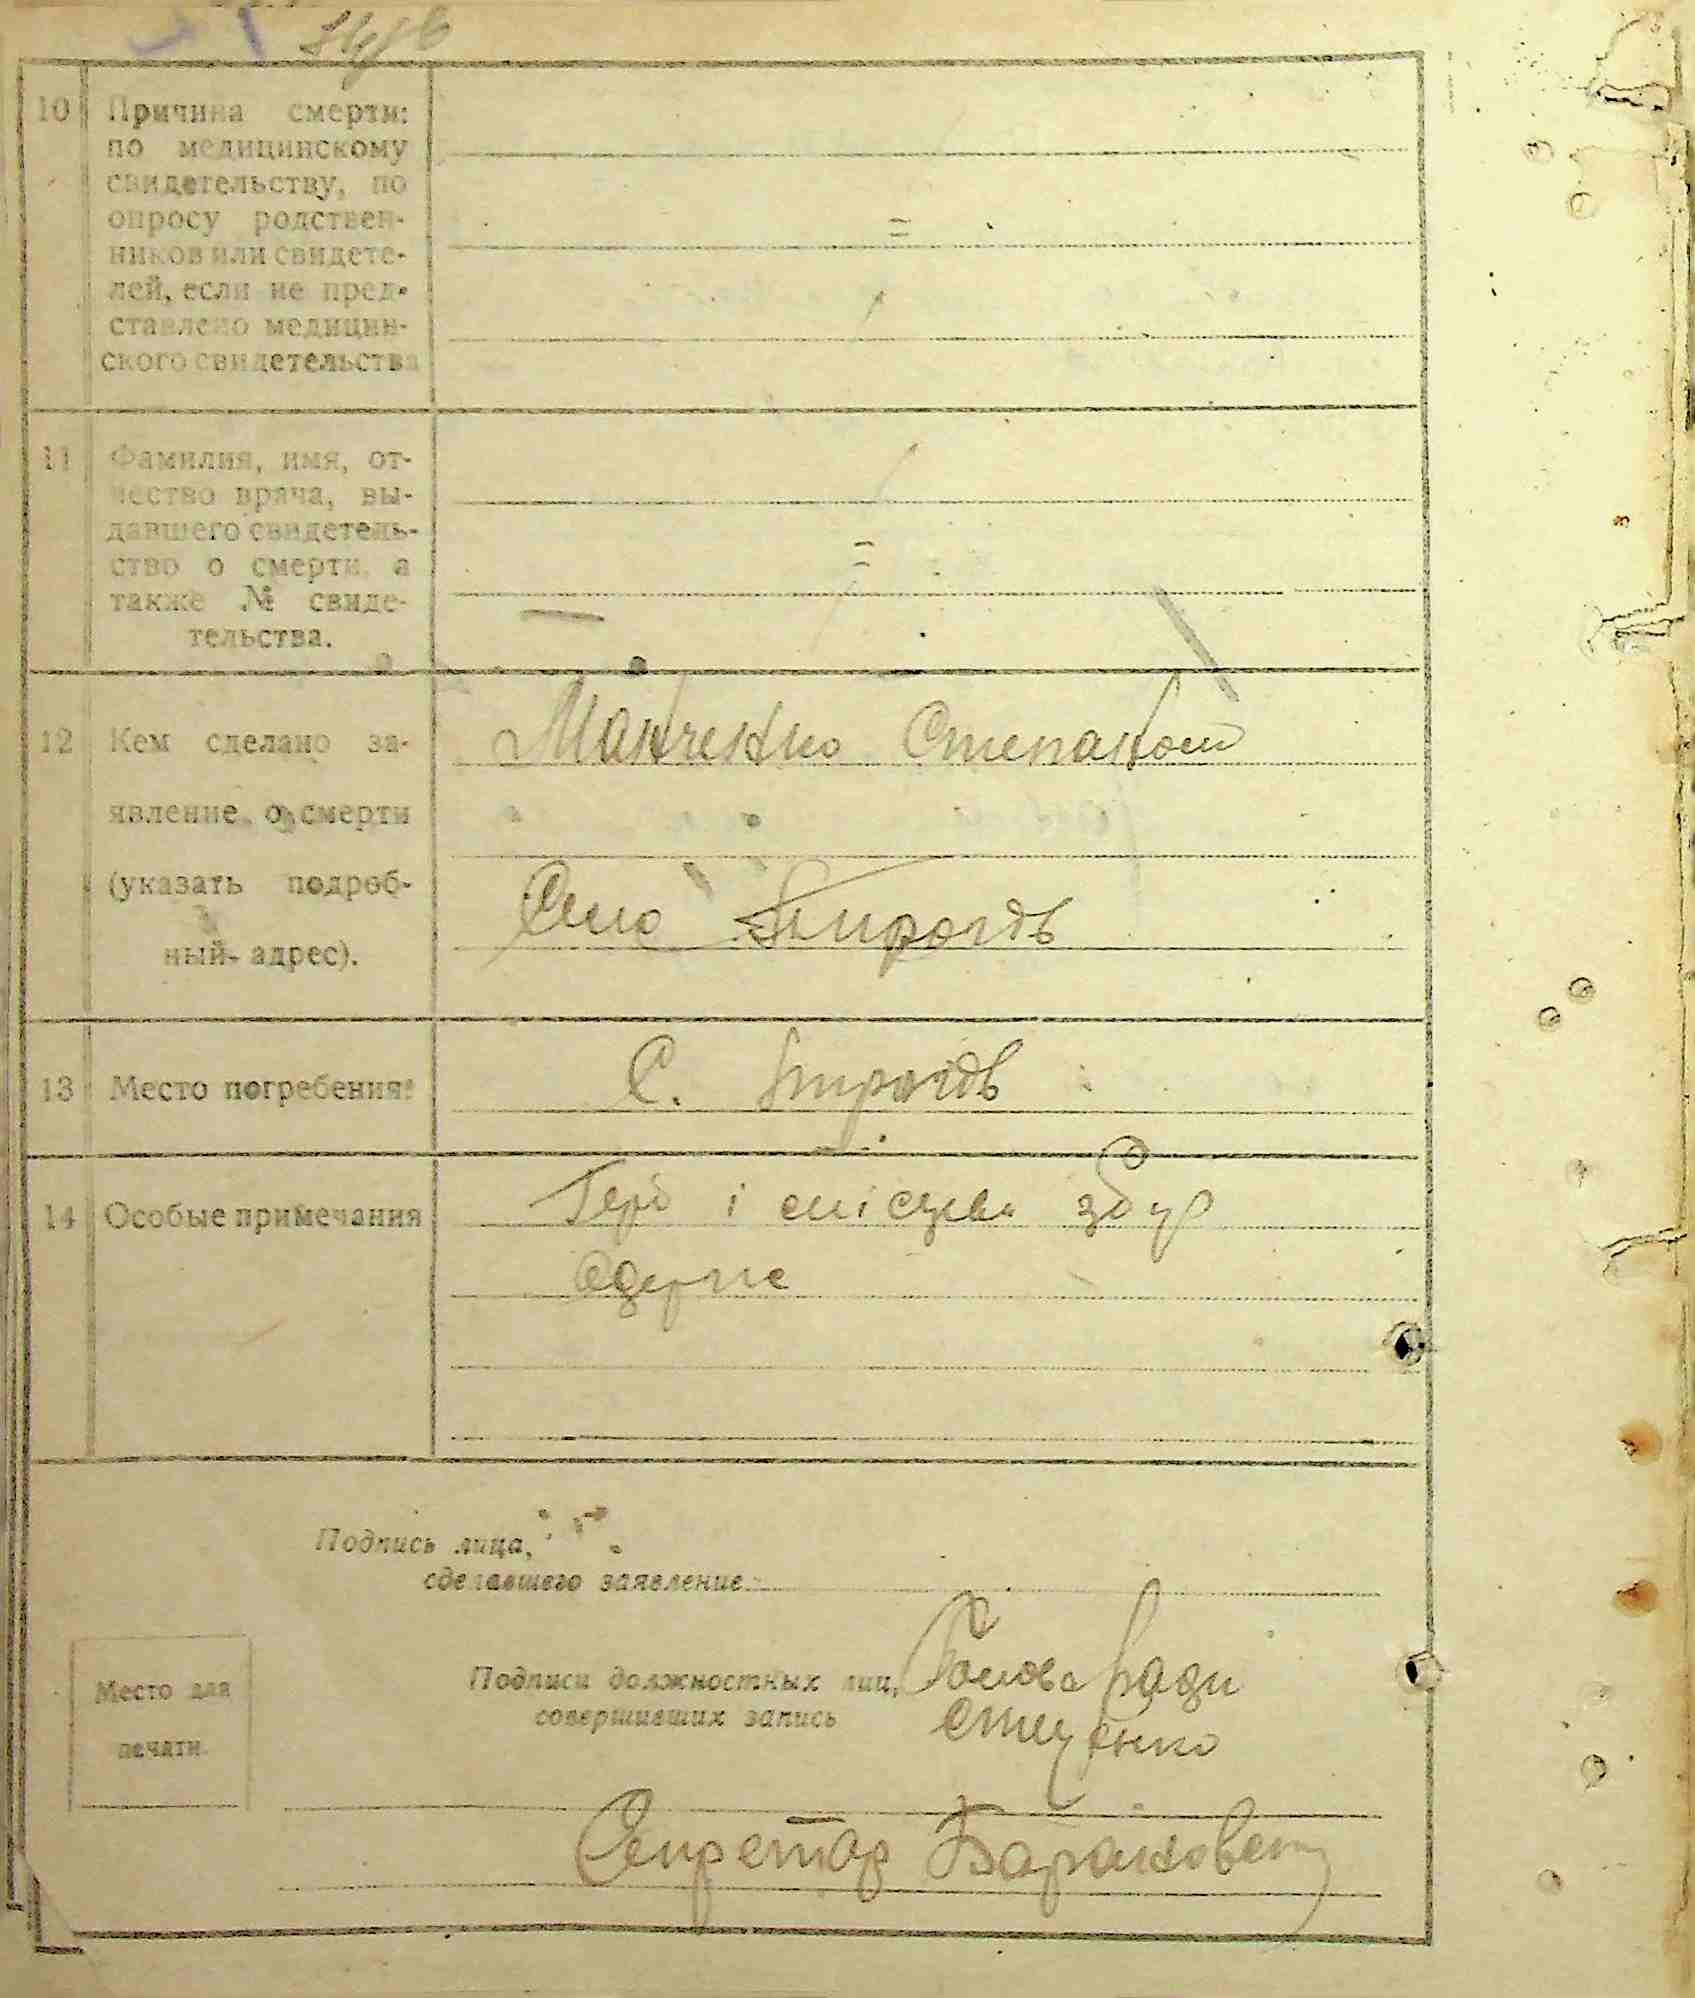 10 Причина смерти:
по медицинскому
свидетельству, по
опросу родствен-
ников или свидете-
лей, если не пред-
ставлено медицин-
ского свидетельства
=
11 Фамилия, имя, от-
чество врача, вы-
давшего свидетель-
ство о смерти, а
также № свиде-
тельства.
=
12 Кем сделано за-
Манченко Степаном
явление о смерти
(указать подроб-
Село Пирогів
ный адрес).
13 Место погребения:
С. Пирогів
14 Особые примечания
Герб і місцеви збір
Одерже
Подпись лица,
сделавшего заявление
Подписи должностных лиц,
совершивших запись
Голова Ради
Стиценко
Место для
печати.
Секретар Барановець